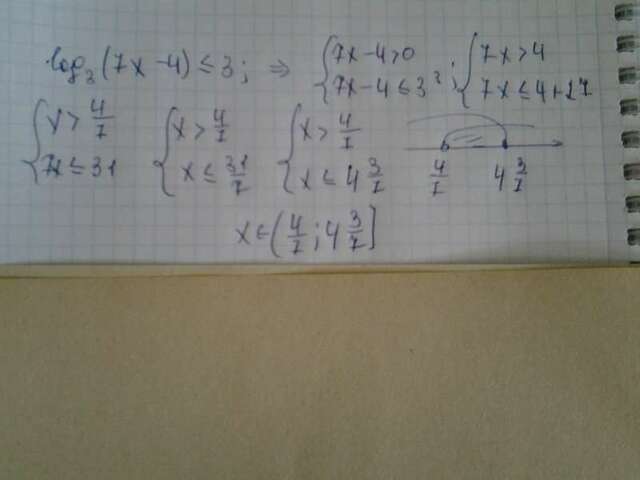 log₃(7x-4)≤3; ⇒ {7x-4>0 7x-4≤3³; {7x>4 7x≤4+27
{x>4/7 7x≤31 {x>4/7 x≤31/7 {x>4/7 x≤4 3/7 4/7 4 3/7
x∈(4/7; 4 3/7]